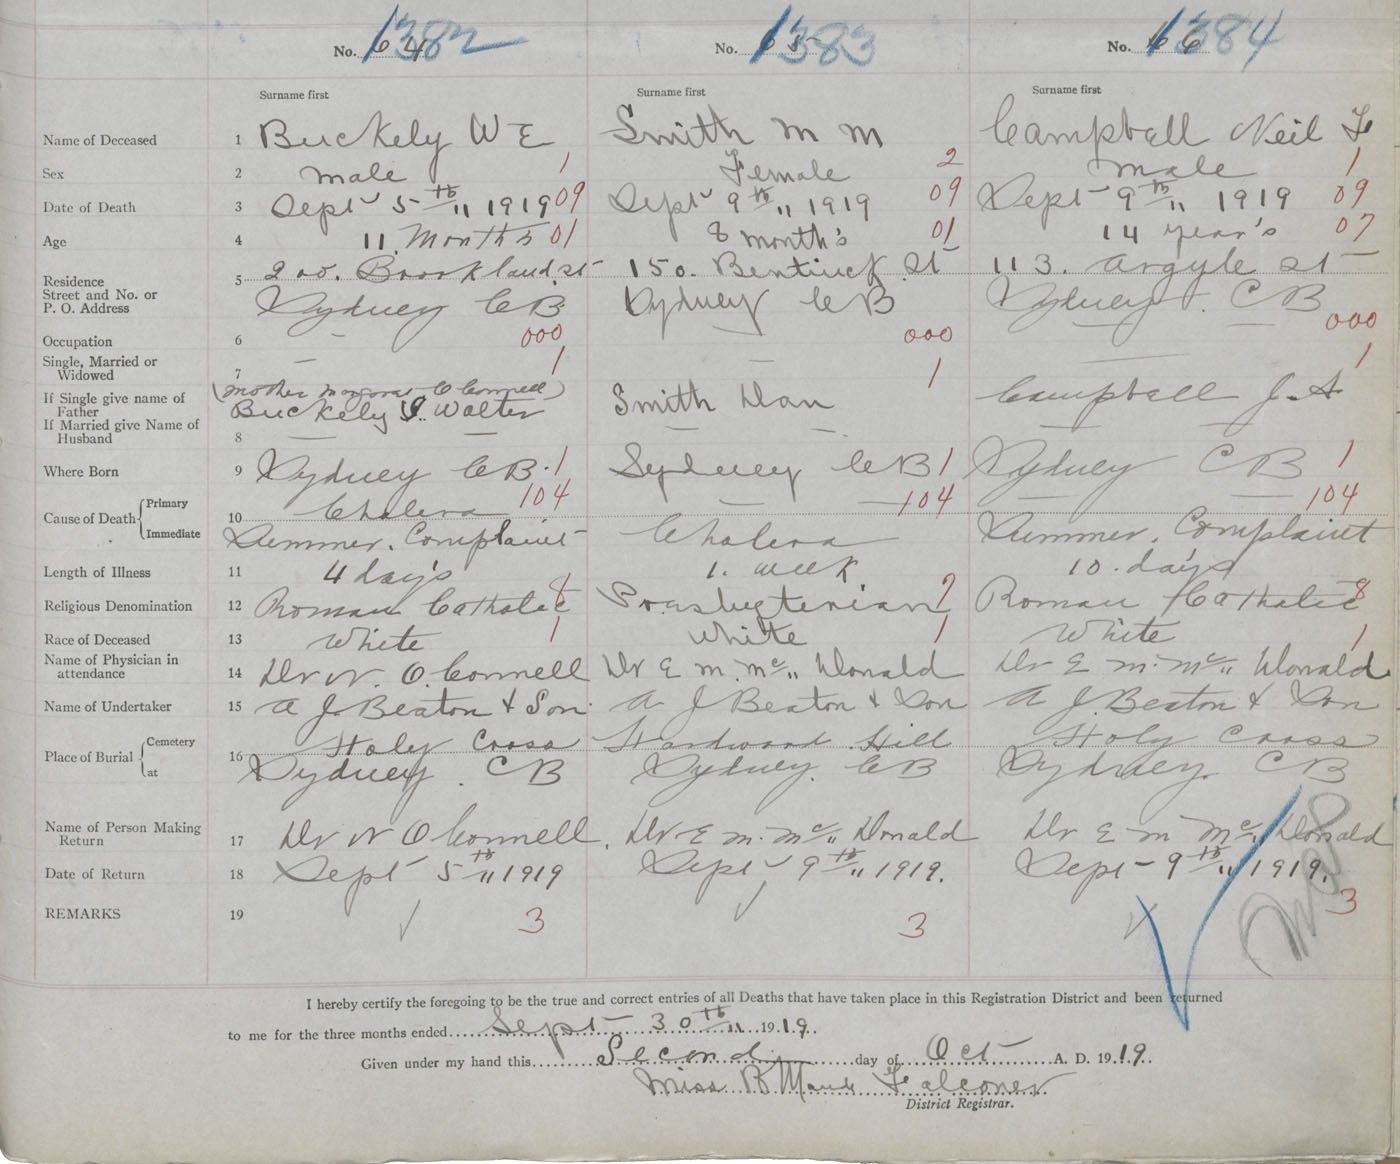 No. 64 1382 No. 65 1383 No. 66 1384
Surname first Surname first Surname first
Name of Deceased 1 Buckely W E Smith M M Campbell Neil F
Sex 2 male 1 Female 2 male 1
Date of Death 3 Sept 5th 1919 09 Sept 9th 1919 09 Sept 9th 1919 09
Age 4 11 Months 01 8 month's 01 14 year's 07
Residence 5 200. Brookland st 150. Bentinck St 113. Argyle St
Street and No. or
P. O. Address Sydney CB Sydney CB Sydney CB
Occupation 6 — 000 000 — 000
Single, Married or
Widowed 7 — 1 — 1 — 1
(mother Margaret O Connell)
If Single give name of
Father Buckely Walter Smith Dan Campbell J. A
If Married give Name of
Husband 8 — — — — — —
Where Born 9 Sydney CB. 1 Sydney CB 1 Sydney CB 1
Cause of Death Primary
10 Cholera 104 — — 104 — — 104
Immediate Summer. Complaint Cholera Summer. Complaint
Length of Illness 11 4 day's 1. week 10. day's
Religious Denomination 12 Roman Catholic 8 Presbyterian 7 Roman Catholic 8
Race of Deceased 13 White 1 White 1 White 1
Name of Physician in
attendance 14 Dr N. O. Connell Dr E M. Mc Donald Dr E M. Mc Donald
Name of Undertaker 15 A J. Beaton & Son A J Beaton & Son A J. Beaton & Son
Place of Burial Cemetery Holy Cross Hardwood Hill Holy Cross
at 16 Sydney. CB Sydney. CB Sydney. CB
Name of Person Making
Return 17 Dr N O Connell. Dr E M. Mc Donald Dr E M Mc Donald
Date of Return 18 Sept 5th 1919 Sept 9th 1919. Sept 9th 1919.
REMARKS 19 3 3 3
I hereby certify the foregoing to be the true and correct entries of all Deaths that have taken place in this Registration District and been returned
to me for the three months ended Sept 30th 1919.
Given under my hand this Second day of Oct A. D. 1919.
Miss B Maude Falconer
District Registrar.